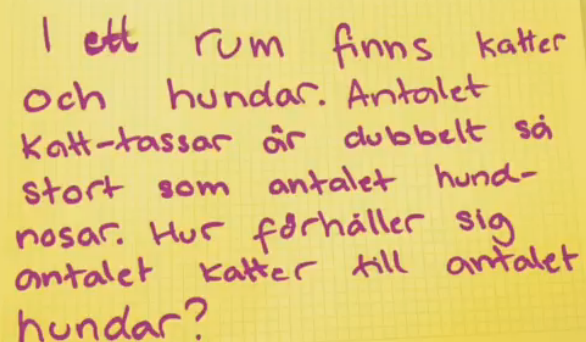 I ett rum finns katter
och hundar. Antalet
Katt-tassar är dubbelt så
stort som antalet hund-
nosar. Hur förhåller sig
antalet katter till antalet
hundar?